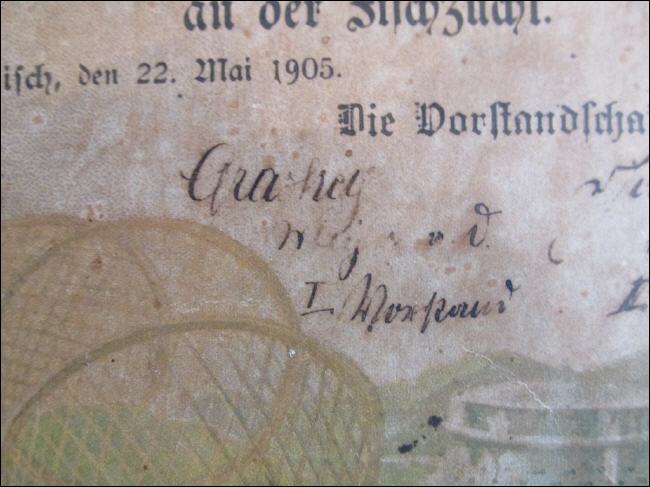 an der Fischzucht.
isch, den 22. Mai 1905.
Die Vorstandscha
I. Vorstand